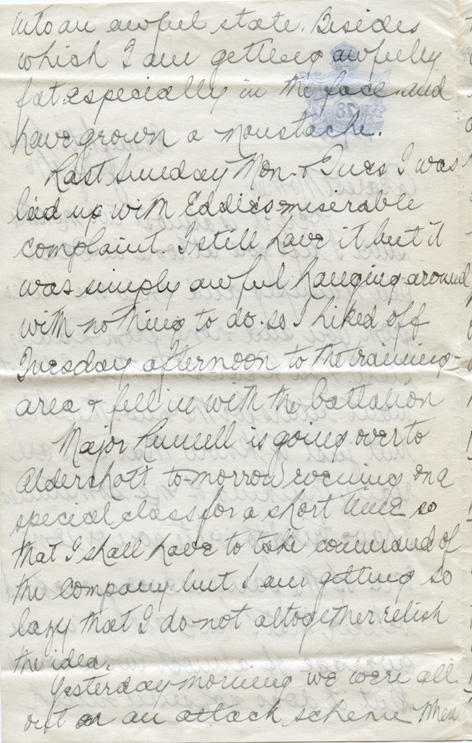 into an awful state. Besides
which I am getting awfully
fat especially in the face and
have grown a moustache.
Last Sunday Mon. & Tues I was
laid up with Eddie's miserable
complaint. I still have it but it
was simply awful hanging around
with nothing to do. so I hiked off
Tuesday afternoon to the training
area & fell in with the battalion
Major is going over to
Aldershott to-morrow evening on a
special class for a short time so
that I shall have to take command of
the company but I am getting so
lazy that I do not altogether relish
the idea.
Yesterday morning we were all
out on an attack scheme when